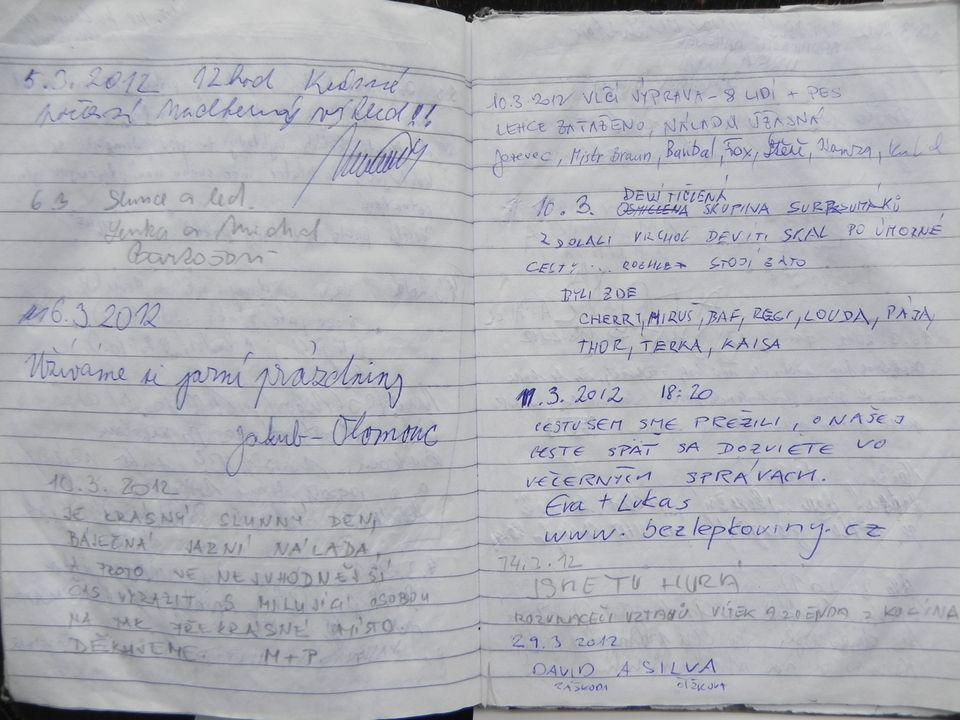 5.3.2012 12hod Krásné
počasí nadherný led!!
6.3 Slunce a led.
Lenka a Michal
6.3.2012
Užíváme si jarní prázdniny
Jakub - Olomouc
10.3.2012
JE KRÁSNÝ SLUNNÝ DEN,
BÁJEČNÁ JARNÍ NÁLADA,
A PROTO VE NEJVHODNĚJŠÍ
ČAS VYRAZIT S MILUJÍCÍ OSOBOU
NA TAK PŘEKRÁSNÉ MÍSTO.
DĚKUJEME M+P
10.3.2012 VLČÍ VÝPRAVA - 8 LIDÍ + PES
LEHCE ZATAŽENO, NÁLADA ÚŽASNÁ
Jezevec, Mistr Braun, Baribal, Fox,
DEVÍTIČLENÁ
10.3. SKUPINA
ZDOLALI VRCHOL DEVÍTI SKAL PO ÚMORNÉ
CESTY... ROZHLED STOJÍ ZATO
BYLI ZDE
CHERRY, MIRUŠ, BAF, REGI, LOUDA, PÁJA,
THOR, TERKA, KAISA
11.3.2012 18:20
CESTU SEM SME PREŽILI, O NAŠEJ
CESTE SPÄŤ SA DOZVIETE VO
VEČERNÝCH SPRÁVACH.
Eva + Lukas
www.bezlepkoviny.cz
14.3.12
JSME TU HURÁ
ROZVRACEČI VZTAHŮ VÍTEK A ZDENDA Z KOLÍNA
29.3.2012
DAVID A SILVA
ZÁŠKODA ČÍŽKOVÁ